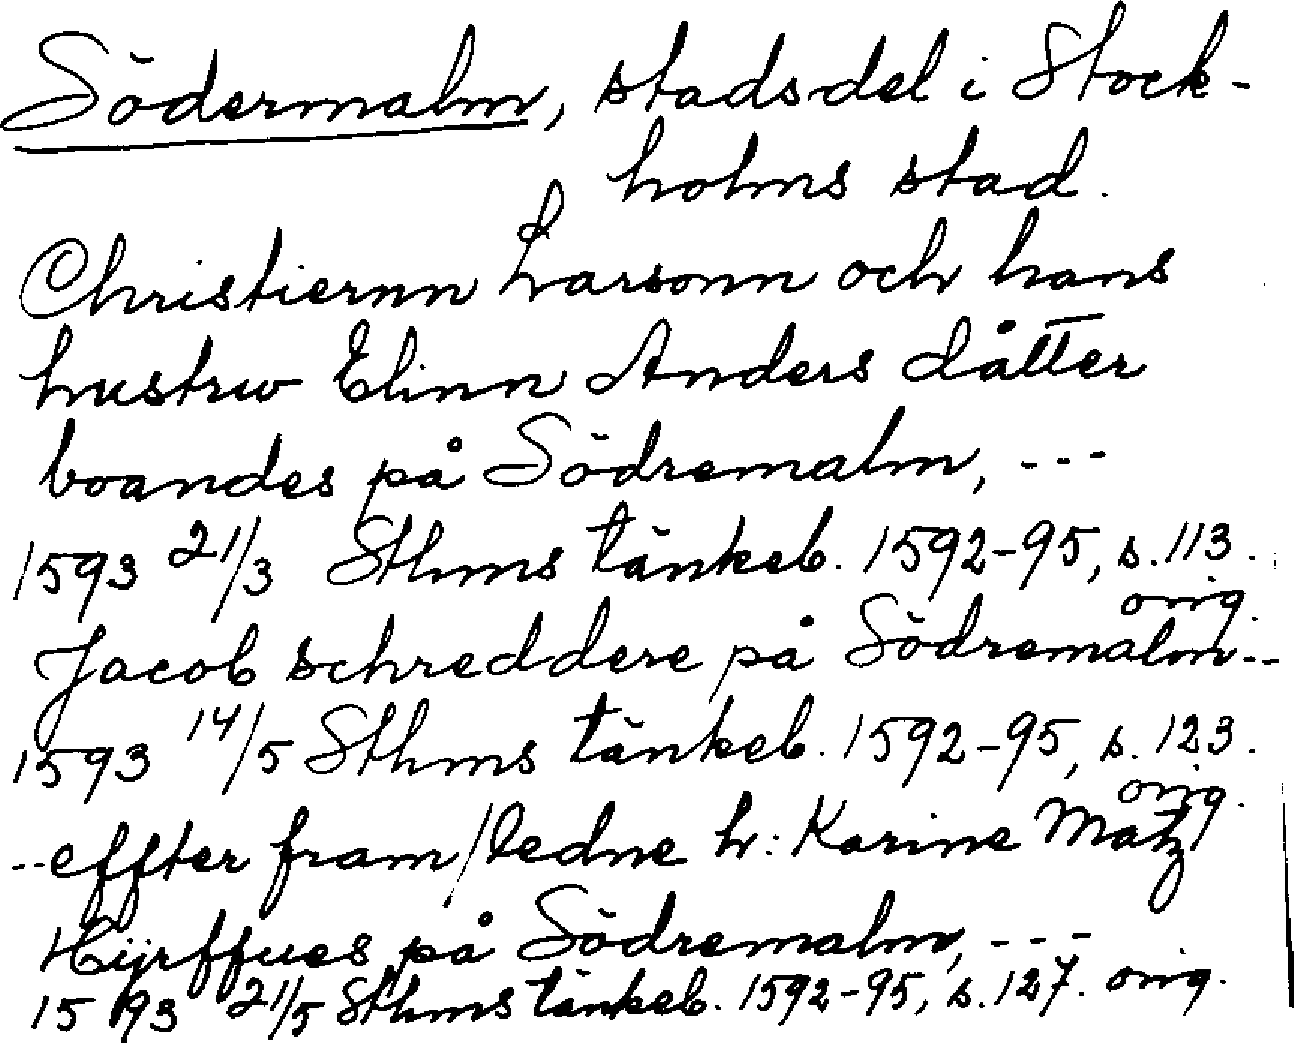 Södermalm, stadsdel i Stock-
holms stad.
Christiernn Larsonn och hans
hustrw Elinn Anders dåtter
boandes på Södremalm, ---
1593 21/3 Sthms tänkeb. 1592-95, s. 113.
orig.
Jacob schreddere på Södremalm--
1593 14/5 Sthms tänkeb. 1592-95, s. 123.
orig.
--effter fram/ledne h: Karine Matz
Hijrffues på Södremalm, ---
1593 21/5 Sthms tänkeb. 1592-95, s. 127. orig.